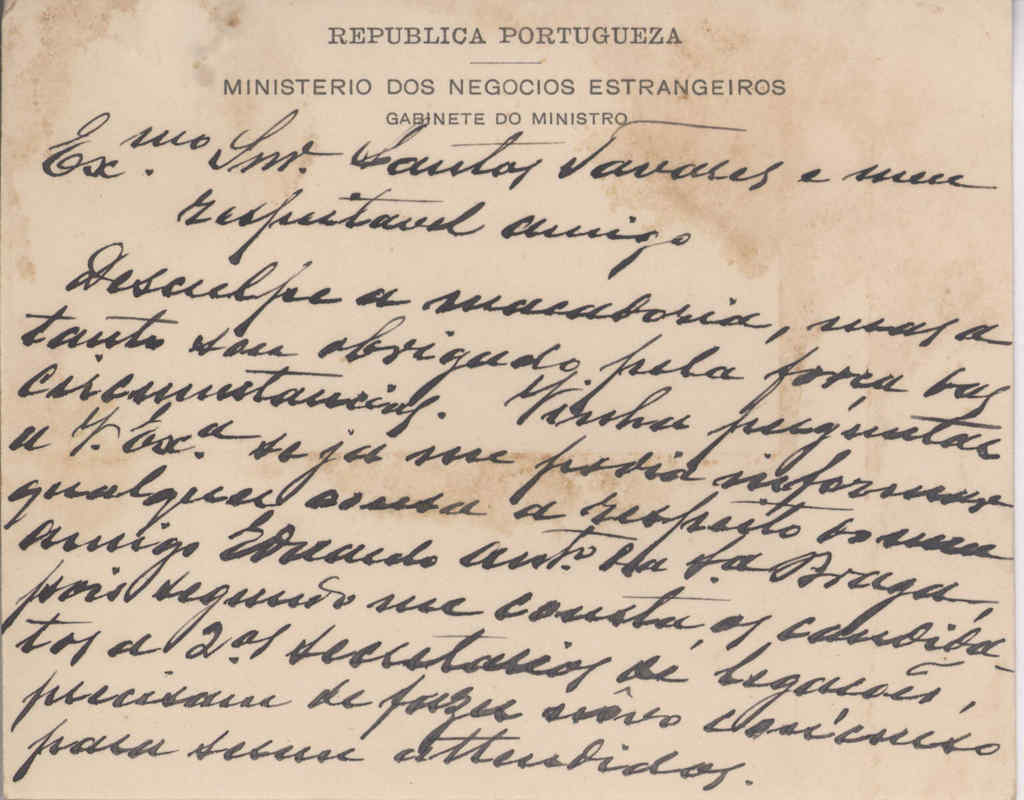 REPUBLICA PORTUGUEZA
MINISTERIO DOS NEGOCIOS ESTRANGEIROS
GABINETE DO MINISTRO
Ex.mo Snr. Santos Tavares e meu
respeitavel amigo
Desculpe a massadoria, mas a
tanto sou obrigado pela força das
circumstancias. Vinha preguntar
a V. Ex.a se já me podia informar
qualquer cousa a respeito do meu
amigo Eduardo Ant.o da S.a Braga,
pois segundo me consta, os candida-
tos a 2.os secretarios de legacões,
precisam de fazer nôvo concurso
para serem attendidos.